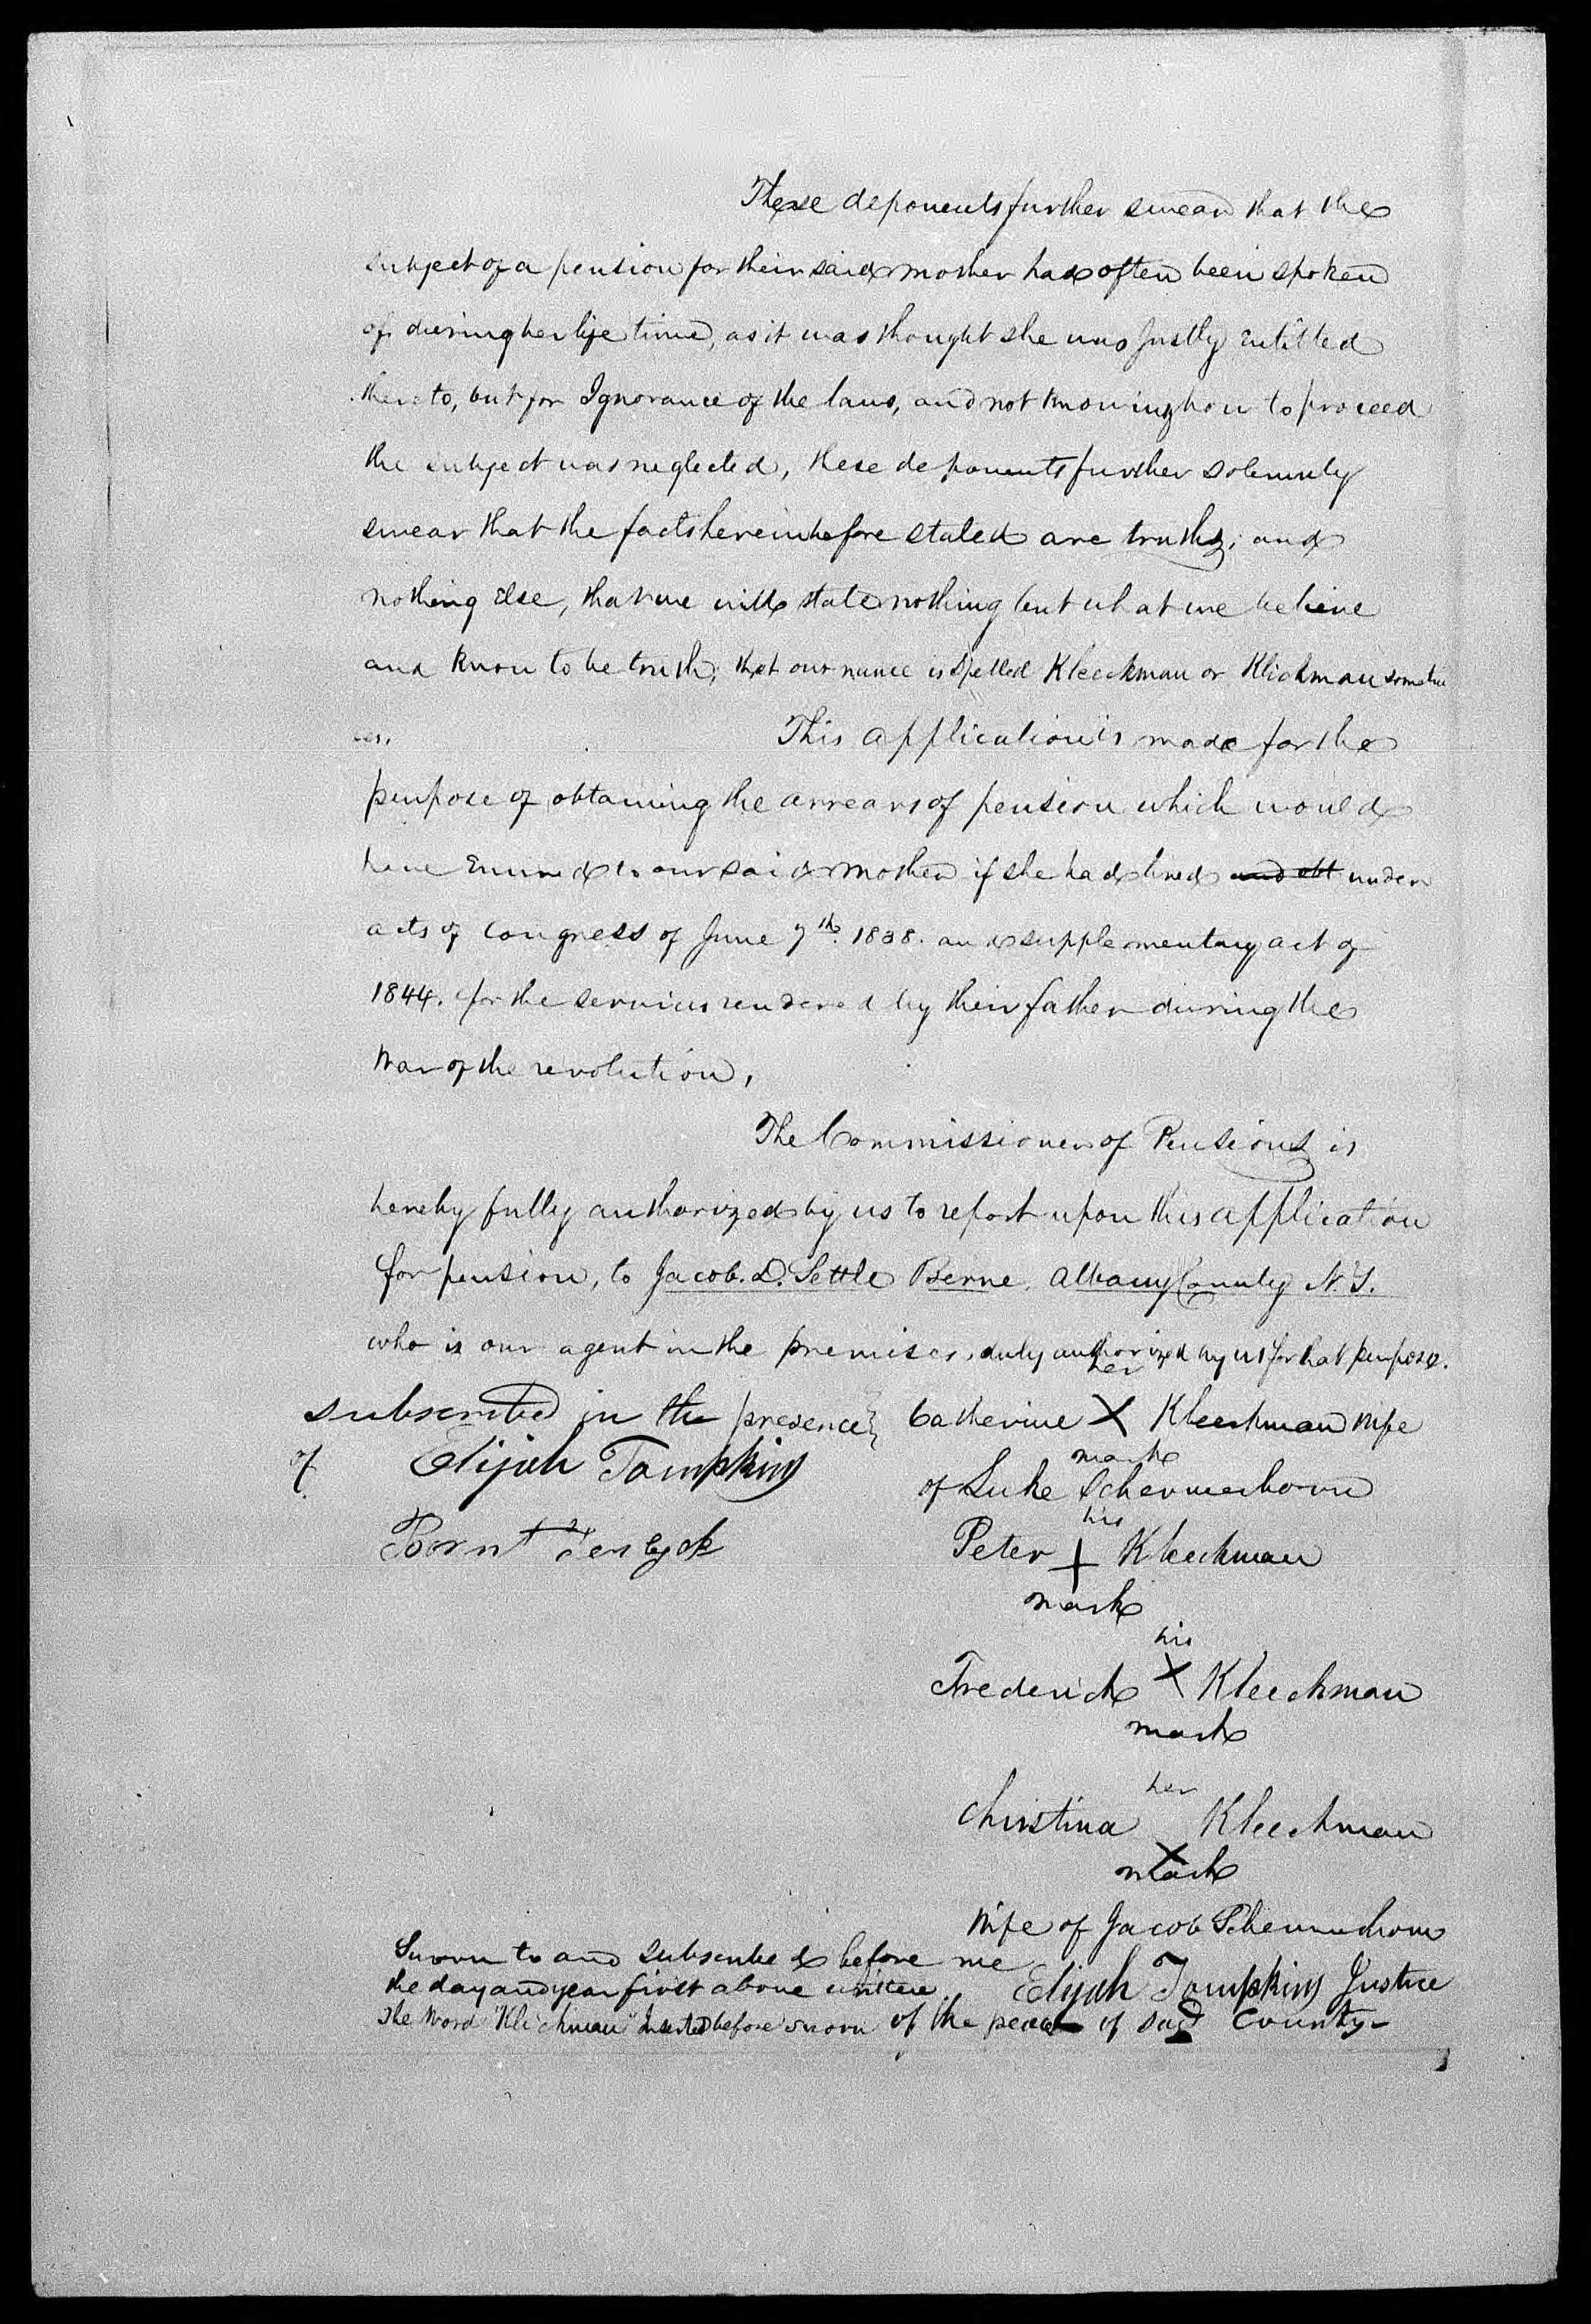 These deponents further swear that the
subject of a pension for their said mother has often been spoken
of during her life time, as it was thought she was Justly Entitled
thereto, but for Ignorance of the laws, and not knowing how to proceed
the subject was neglected, these deponents further solemnly
swear that the facts hereinbefore stated are truths, and
nothing Else, that we will state nothing but what we believe
and know to be truth, that our name is spelled Kleeckman or Klickman sometim
es.
This application is made for the
purpose of obtaining the arrears of pension which would
have Enured to our said mother if she had lived and obt under
acts of Congress of June 7th. 1838. and supplementary act of
1844. for the services rendered by their father during the
War of the revolution,
The Commissioner of Pensions is
hereby fully authorized by us to report upon this application
for pension, to Jacob. D. Settle Berne. Albany County N.Y.
who is our agent in the premises, duly authorized by us for that purpose.
subscribed in the presence
of Elijah Tompkins
Bornt Ten Eyck
her
Catherine X Kleeckman Wife
mark
of Luke Schermerhorn
his
Peter + Kleeckman
mark
his
Frederick X Kleeckman
mark
her
Christina X Kleeckman
mark
Wife of Jacob Schermerhorn
Sworn to and Subscribed before me
the day and year first above written. Elijah Tompkins Justice
The Word "Klickman" Inserted before sworn of the peace of said County